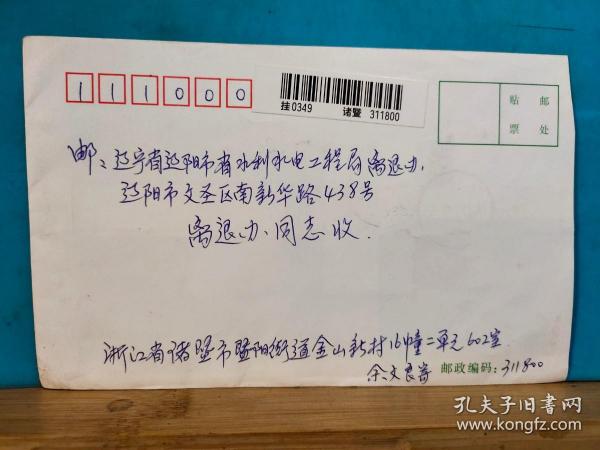 111000
挂0349 诸暨 311800
贴 邮
票 处
邮:辽宁省辽阳市省水利水电工程局离退办.
辽阳市文圣区南新华路438号
离退办.同志收.
浙江省诸暨市暨阳街道金山新村16幢二单元602室
余文良寄 邮政编码:311800
孔夫子旧书网
www.kongfz.com